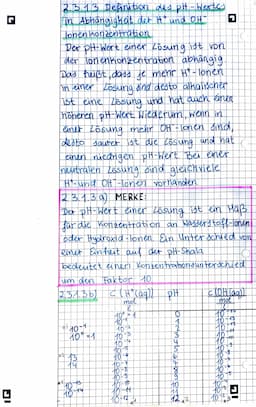 2.3.1.3 Definition des pH-Wertes
in Abhängigkeit der H⁺ und OH⁻
Ionenkonzentration
Der pH-Wert einer Lösung ist von
der Ionenkonzentration abhängig
Das heißt, dass je mehr H⁺-Ionen
in einer Lösung sind desto alkalischer
ist eine Lösung und hat auch einen
höheren pH-Wert Wiederum, wenn in
einer Lösung mehr OH⁻-Ionen sind,
desto saurer ist die Lösung und hat
einen niedrigen pH-Wert Bei einer
neutralen Lösung sind gleichviele
H⁺- und OH⁻-Ionen vorhanden
2.3.1.3 a) MERKE:
Der pH-Wert einer Lösung ist ein Maß
für die Konzentration an Wasserstoff-Ionen
oder Hydroxid-Ionen Ein Unterschied von
einer Einheit auf der pH-Skala
bedeutet einen Konzentrationsunterschied
um den Faktor 10
2.3.1.3 b) c (H⁺(aq)) pH c (OH⁻(aq))
0
1
2
3
4
5
6
7
8
9
10
11
12